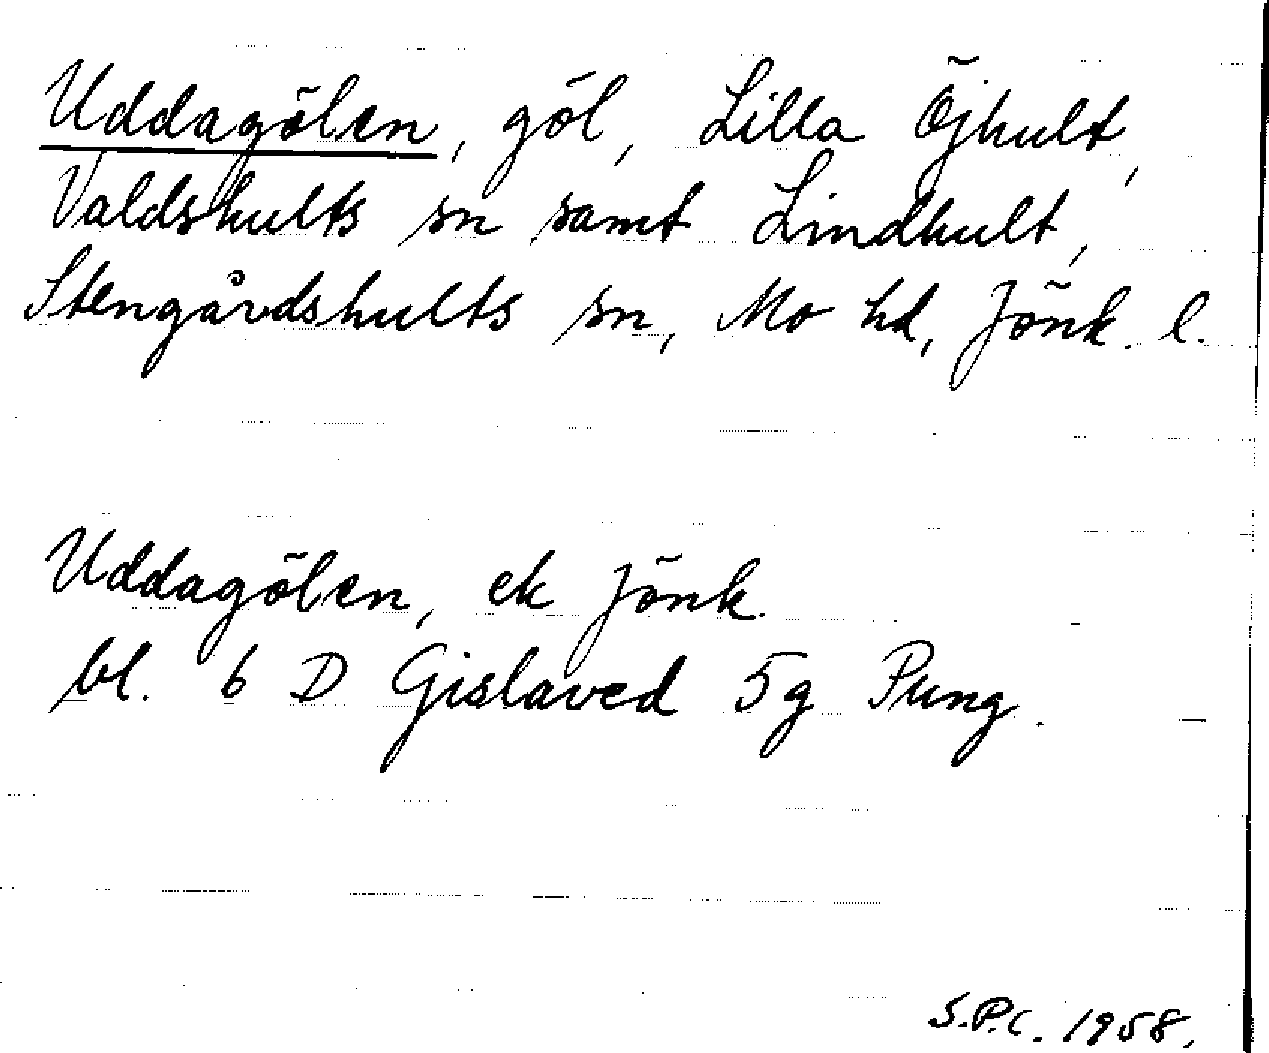 Uddagölen, göl, Lilla Öjhult,
Valdshults sn samt Lindhult,
Stengårdshults sn, Mo hd, Jönk. l.
Uddagölen, ek Jönk.
bl. 6 D Gislaved 5g Pung.
S.P.C. 1958.